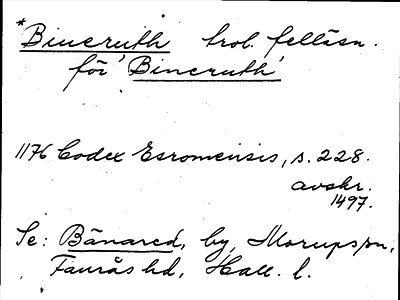 *Bineruth trol. felläsn.
för 'Bincruth'
1176 Codex Esromensis, s. 228.
avskr.
1497.
Se: Bänared, by, Morups sn,
Faurås hd, Hall. l.